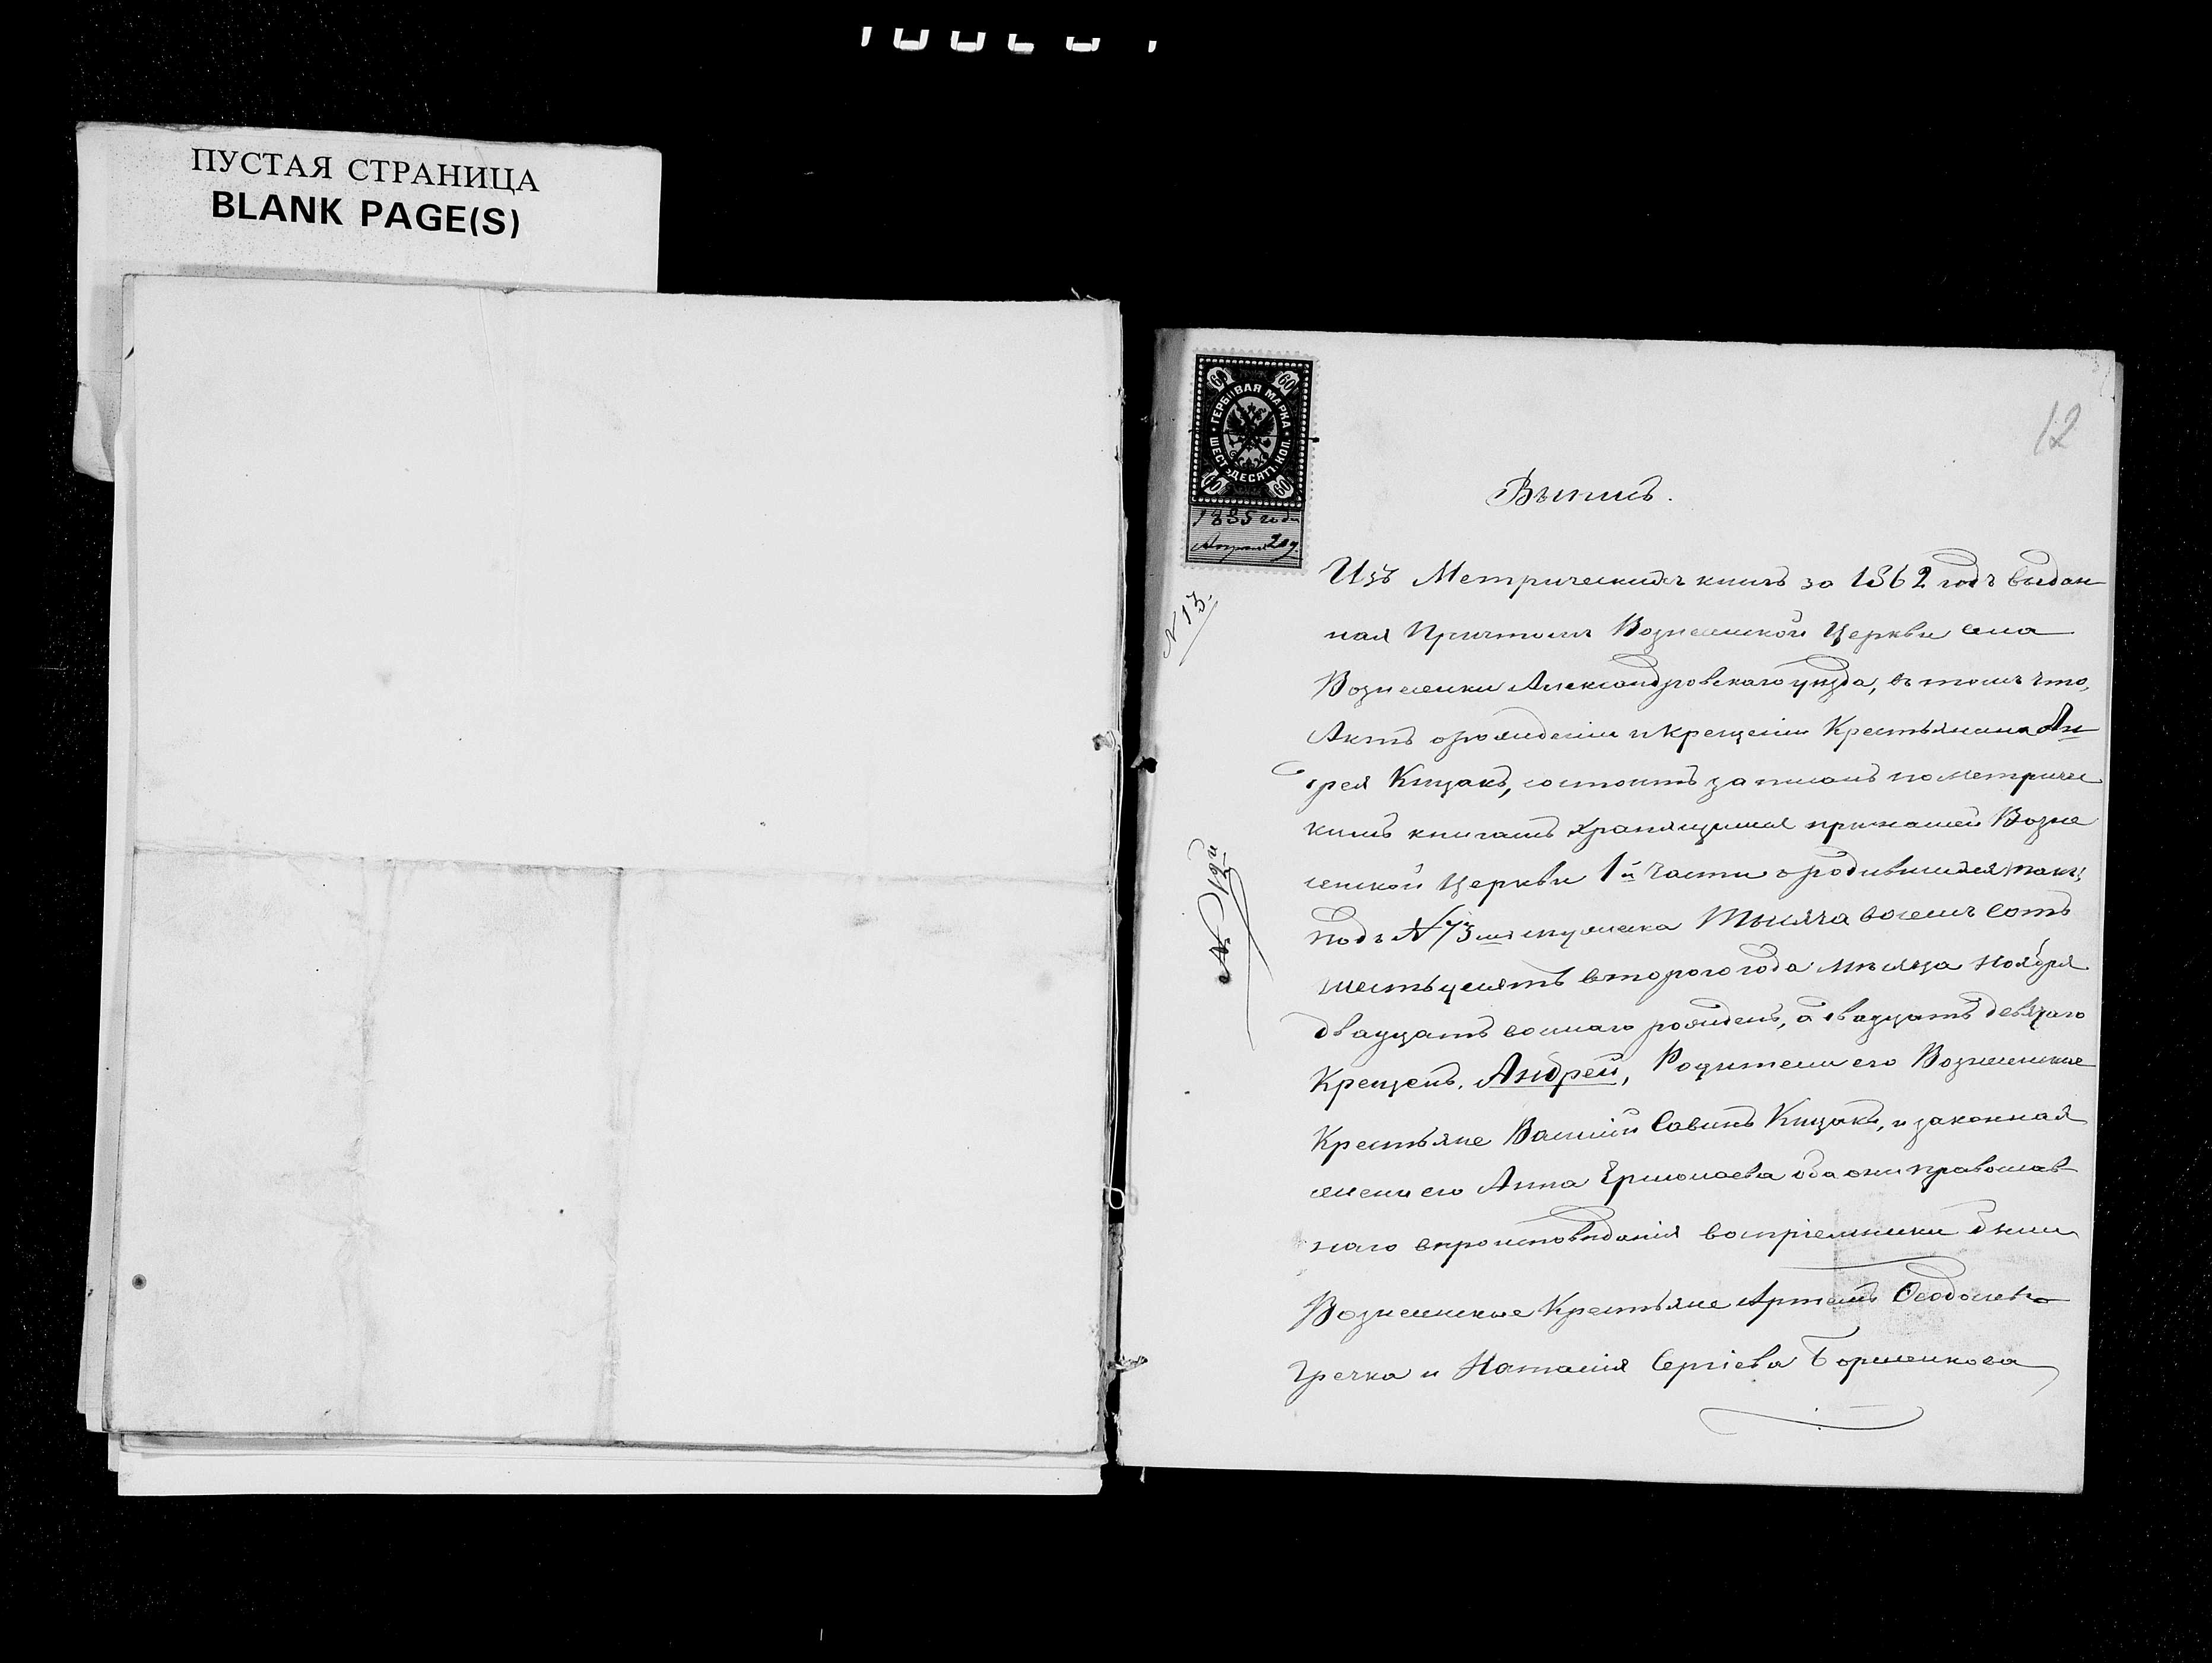 ПУСТАЯ СТРАНИЦА
BLANK PAGE(S)
12
60 60
ГЕРБОВАЯ МАРКА
ШЕСТЬДЕСЯТЪ КОП.
60 60
1885 года
Апреля 20 д.
N 13.
№ 12й
Выпись.
Изъ Метрическихъ книгъ за 1862 годъ выдан
ная Причтомъ Вознесенской Церкви села
Вознесенки Александровскаго уезда, въ томъ что,
Актъ о рождении и крещении Крестьянина Ан
дрея Кицакъ, состоитъ записанъ по метричес
кимъ книгамъ хранящимся при нашей Возне
сенской Церкви 1й части о родившихся
подъ N 73 мужеска Тысяча восемъ сотъ
шестьдесятъ второго года месяца Ноября
двадцать осмаго рожденъ, а двадцать девятаго
Крещенъ. Андрей, Родители его Вознесенские
Крестьяне Василий Савинъ Кицакъ, и законная
жена его Анна Ермолаева оба они православ
наго вероисповедания восприемники были
Вознесенские Крестьяне Артемъ Феодосиевъ
Гречка и Наталия Сергиева Борисенкова